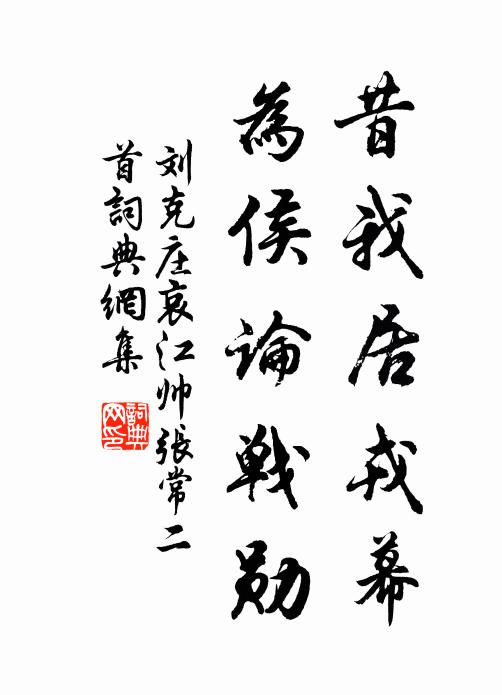 昔我居戎幕
為侯論戦勋
刘克庄哀江帅張常二
首詞典網集
詞典
网印